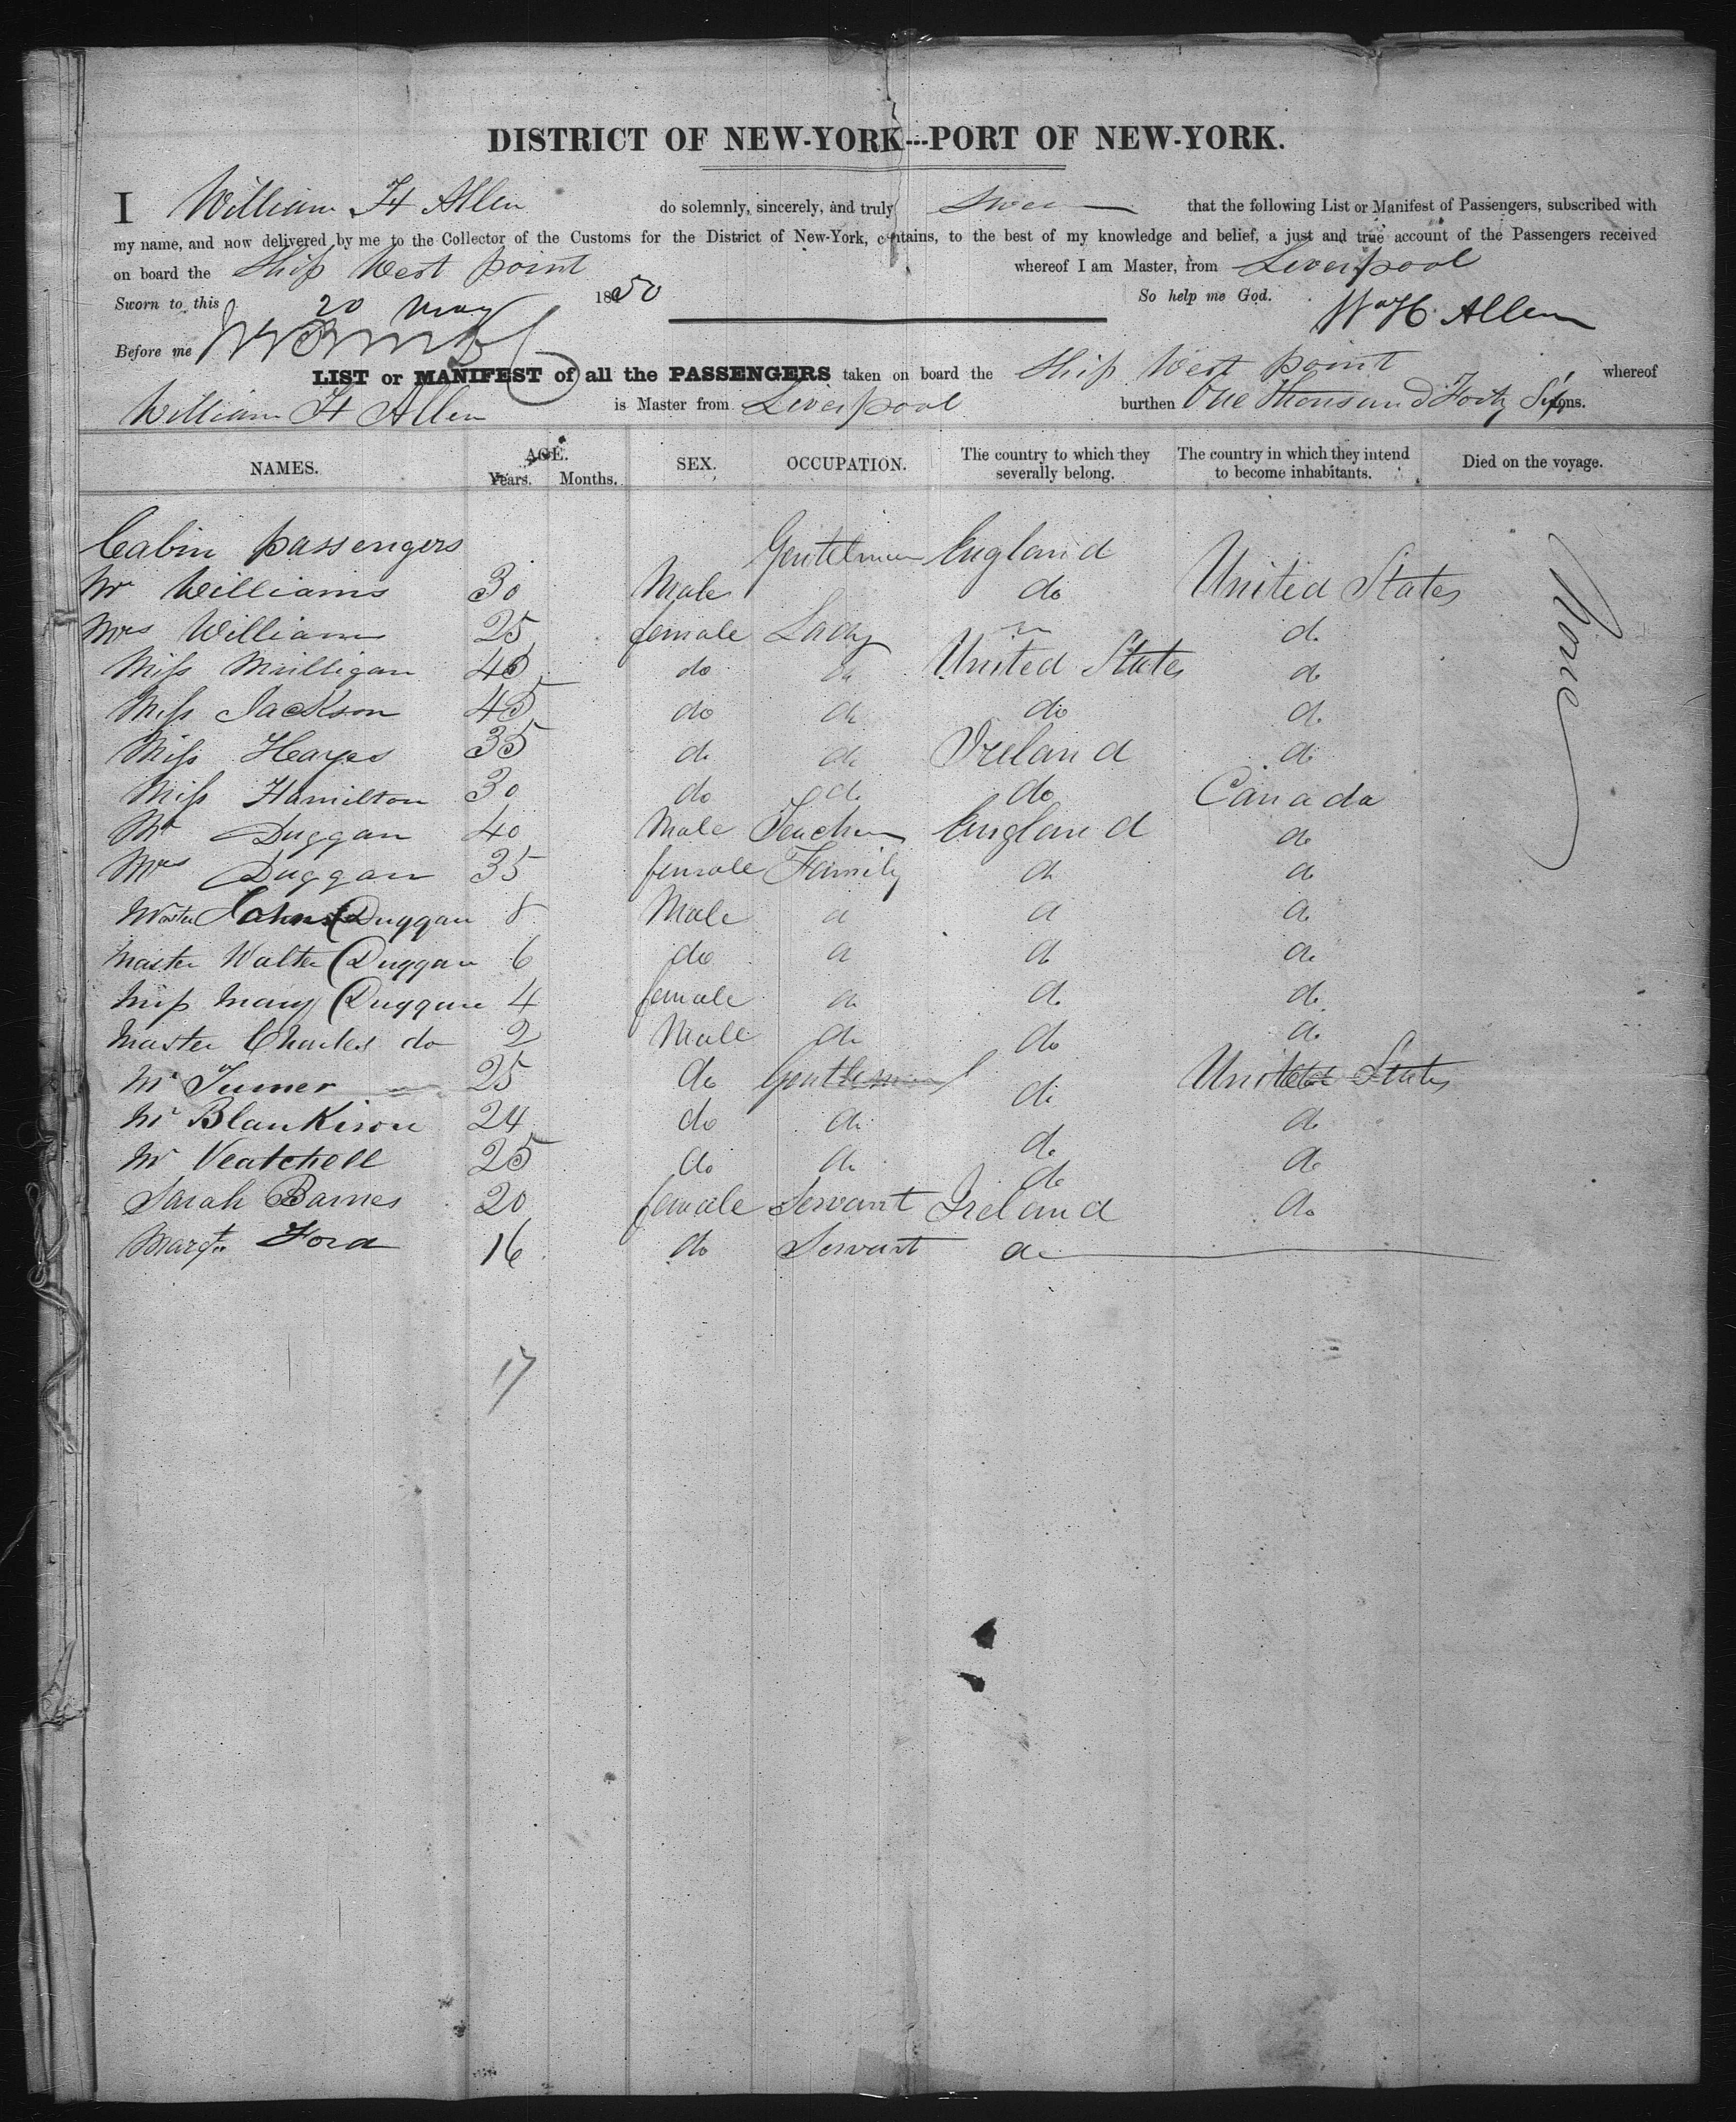 DISTRICT OF NEW-YORK---PORT OF NEW-YORK.
I William H Allen do solemnly, sincerely, and truly Swear that the following List or Manifest of Passengers, subscribed with
my name, and now delivered by me to the Collector of the Customs for the District of New-York, contains, to the best of my knowledge and belief, a just and true account of the Passengers received
on board the Ship West point whereof I am Master, from Liverpool
Sworn to this 20 May 1850 So help me God. Wm H. Allen
Before me
LIST or MANIFEST of all the PASSENGERS taken on board the Ship West point whereof
William H Allen is Master from Liverpool burthen One Thousand Forty Six tons.
NAMES. AGE. Years. Months. SEX. OCCUPATION. The country to which they severally belong. The country in which they intend to become inhabitants. Died on the voyage.
Cabin passengers Gentelman England
Mr Williams 30 Male do United States None
Mrs Williams 25 female Lady do
Miss Mulligan 45 do do United States do
Miss Jackson 45 do do do do
Miss Hayes 35 do do Ireland do
Miss Hamilton 30 do do do Canada
Mr Duggan 40 Male England do
Mrs Duggan 35 female Family do do
Master John Duggan 8 Male do do do
Master Walter Duggan 6 do do do do
Miss Mary Duggan 4 female do do do
Master Charles do 2 Male do do do
Mr Turner 25 do Gentleman do United States
Mr Blankison 24 do do do do
Mr Veatchell 25 do do do do
Sarah Barnes 20 female Servant Ireland do
Margt Ford 16 do Servant do
17